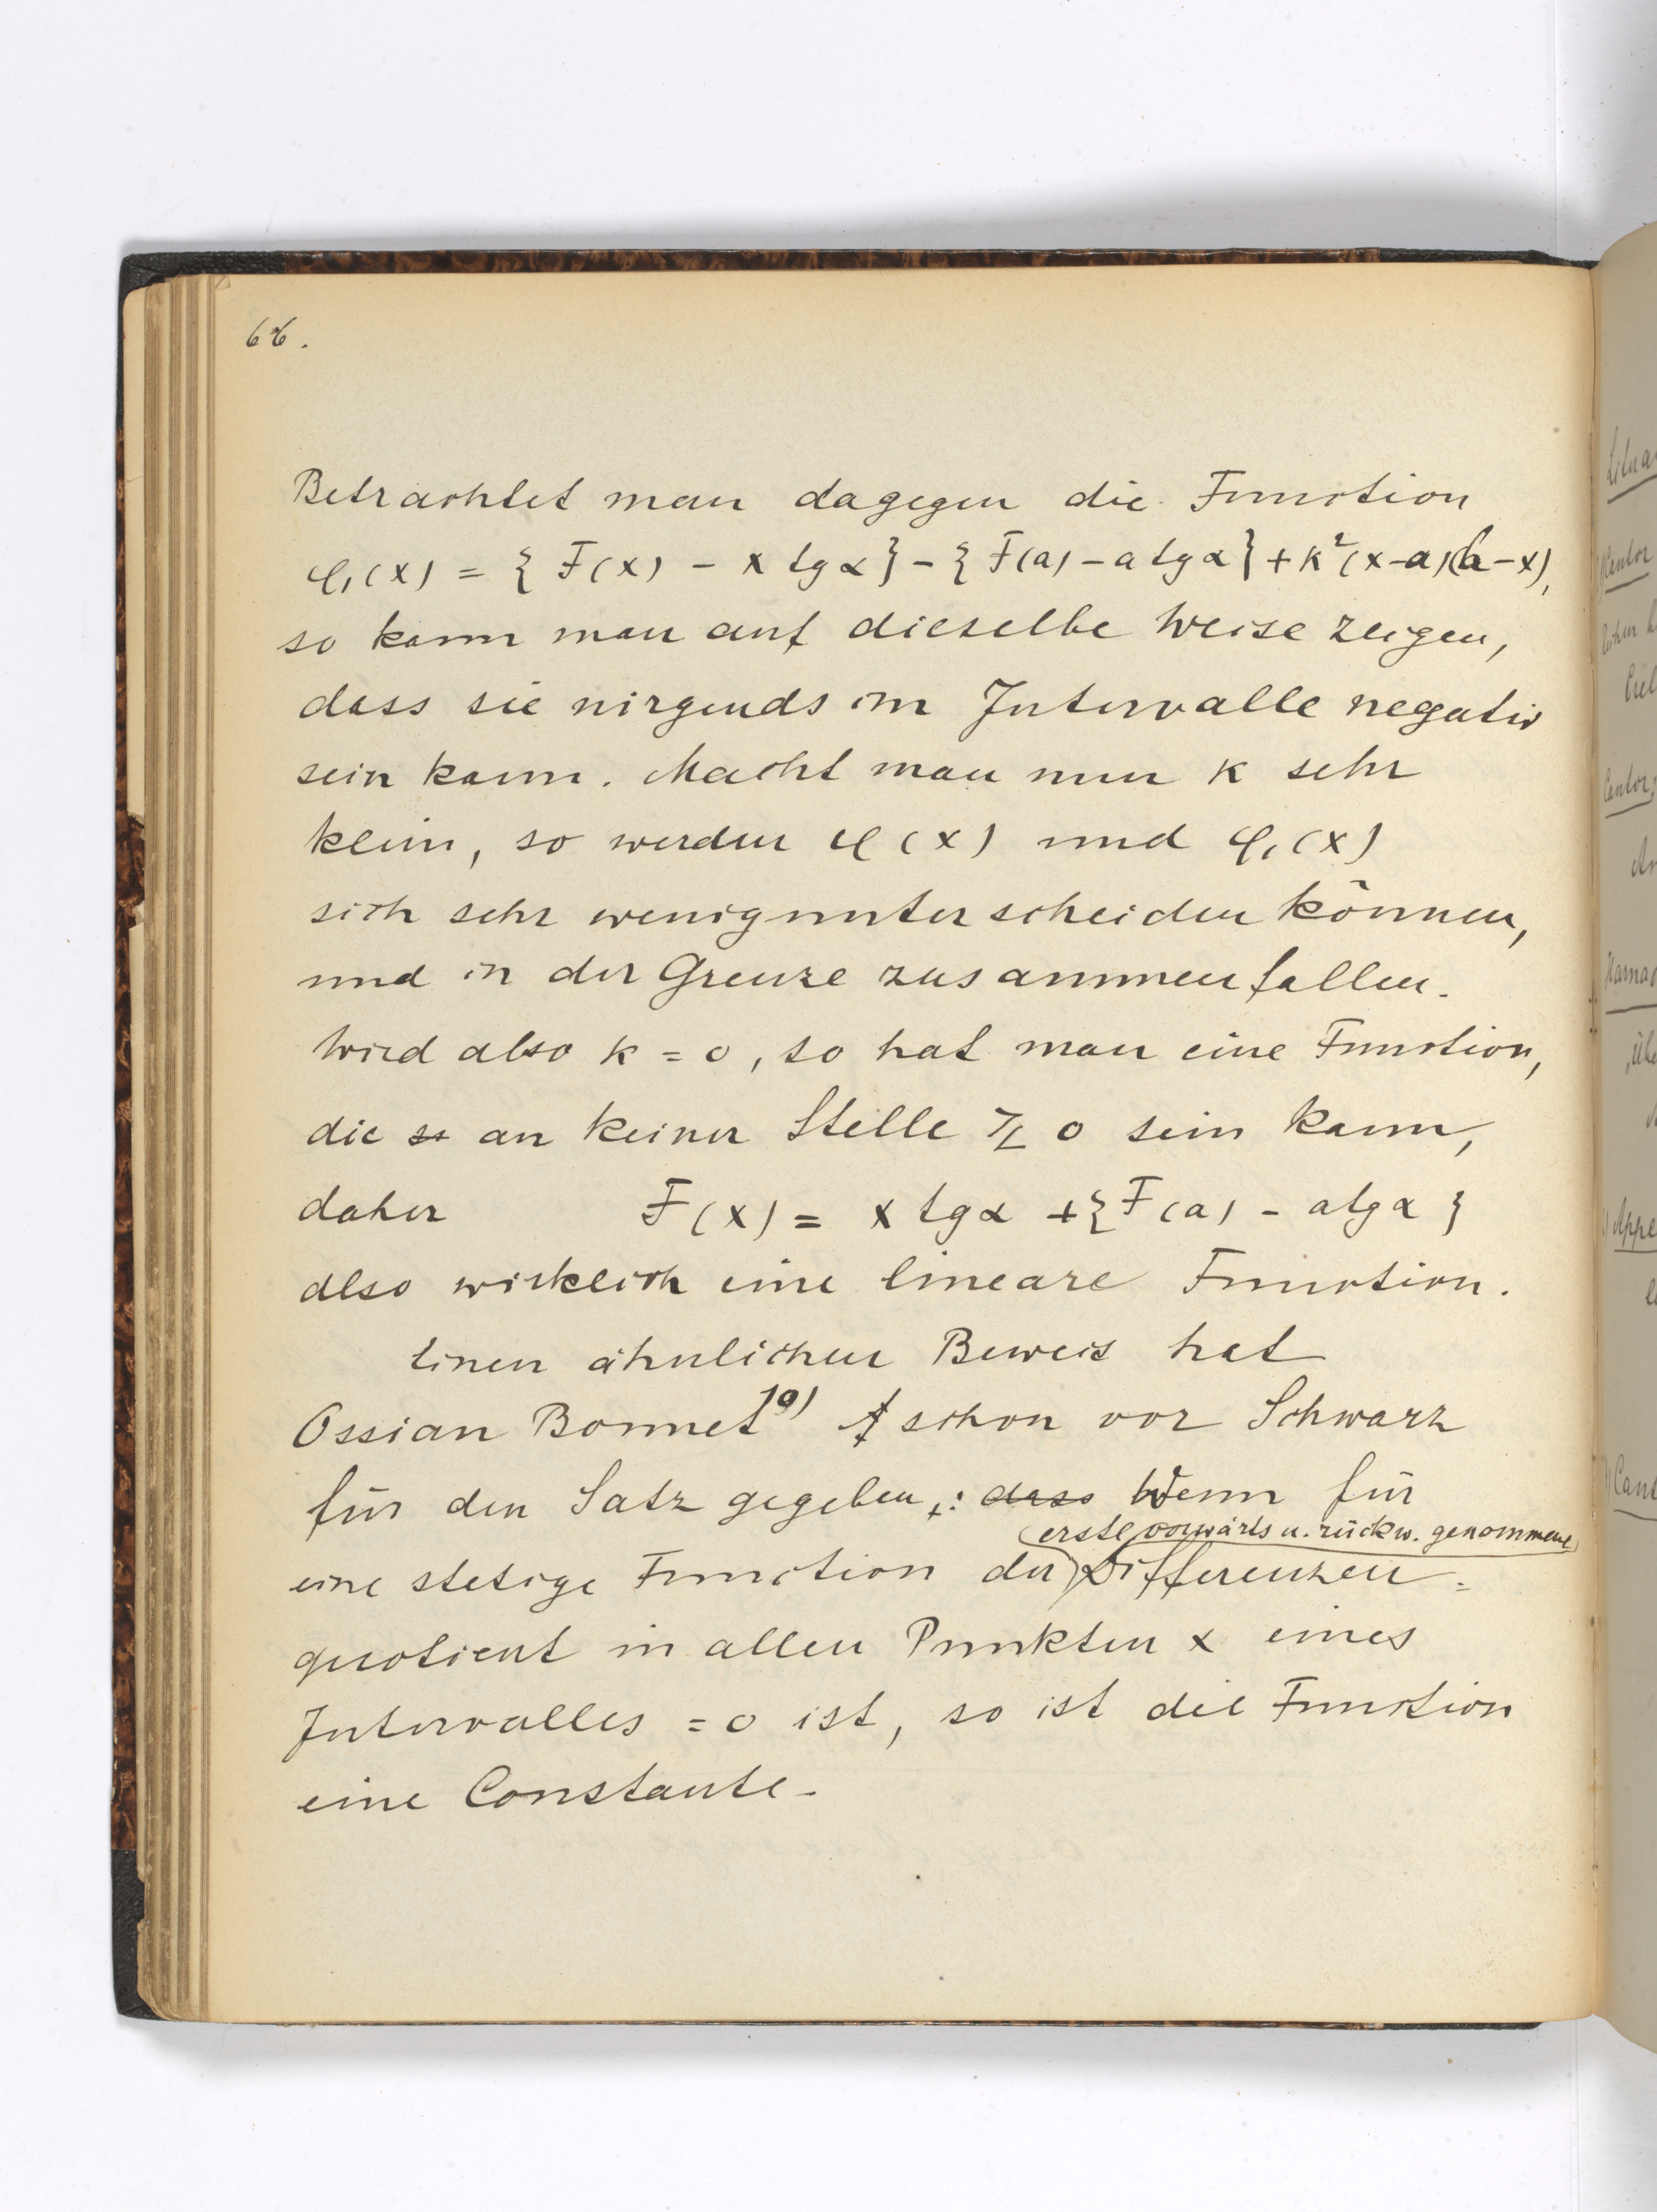 66.
Betrachtet man dagegen die Function
φ₁(x) = { F(x) - x tg α} - { F(a) - a tg α} + k²(x-a)(b-x),
so kann man auf dieselbe Weise zeigen,
dass sie nirgends im Intervalle negativ
sein kann. Macht man nun k sehr
klein, so werden φ(x) und φ₁(x)
sich sehr wenig unterscheiden können,
und in der Grenze zusammenfallen.
Wird also k = 0, so hat man eine Function,
die an keiner Stelle ≷ 0 sein kann,
daher F(x) = x tg α + {F(a) - a tg α }
also wirklich eine lineare Function.
Einen ähnlichen Beweis hat
Ossian Bonnet schon vor Schwarz
für den Satz gegeben: dass Wenn für
erste vorwärts u. rückw. genommene
eine stetige Function der Differenzen=
quotient in allen Punkten x eines
Intervalles = 0 ist, so ist die Function
eine Constante.
Cantor
Cantor,